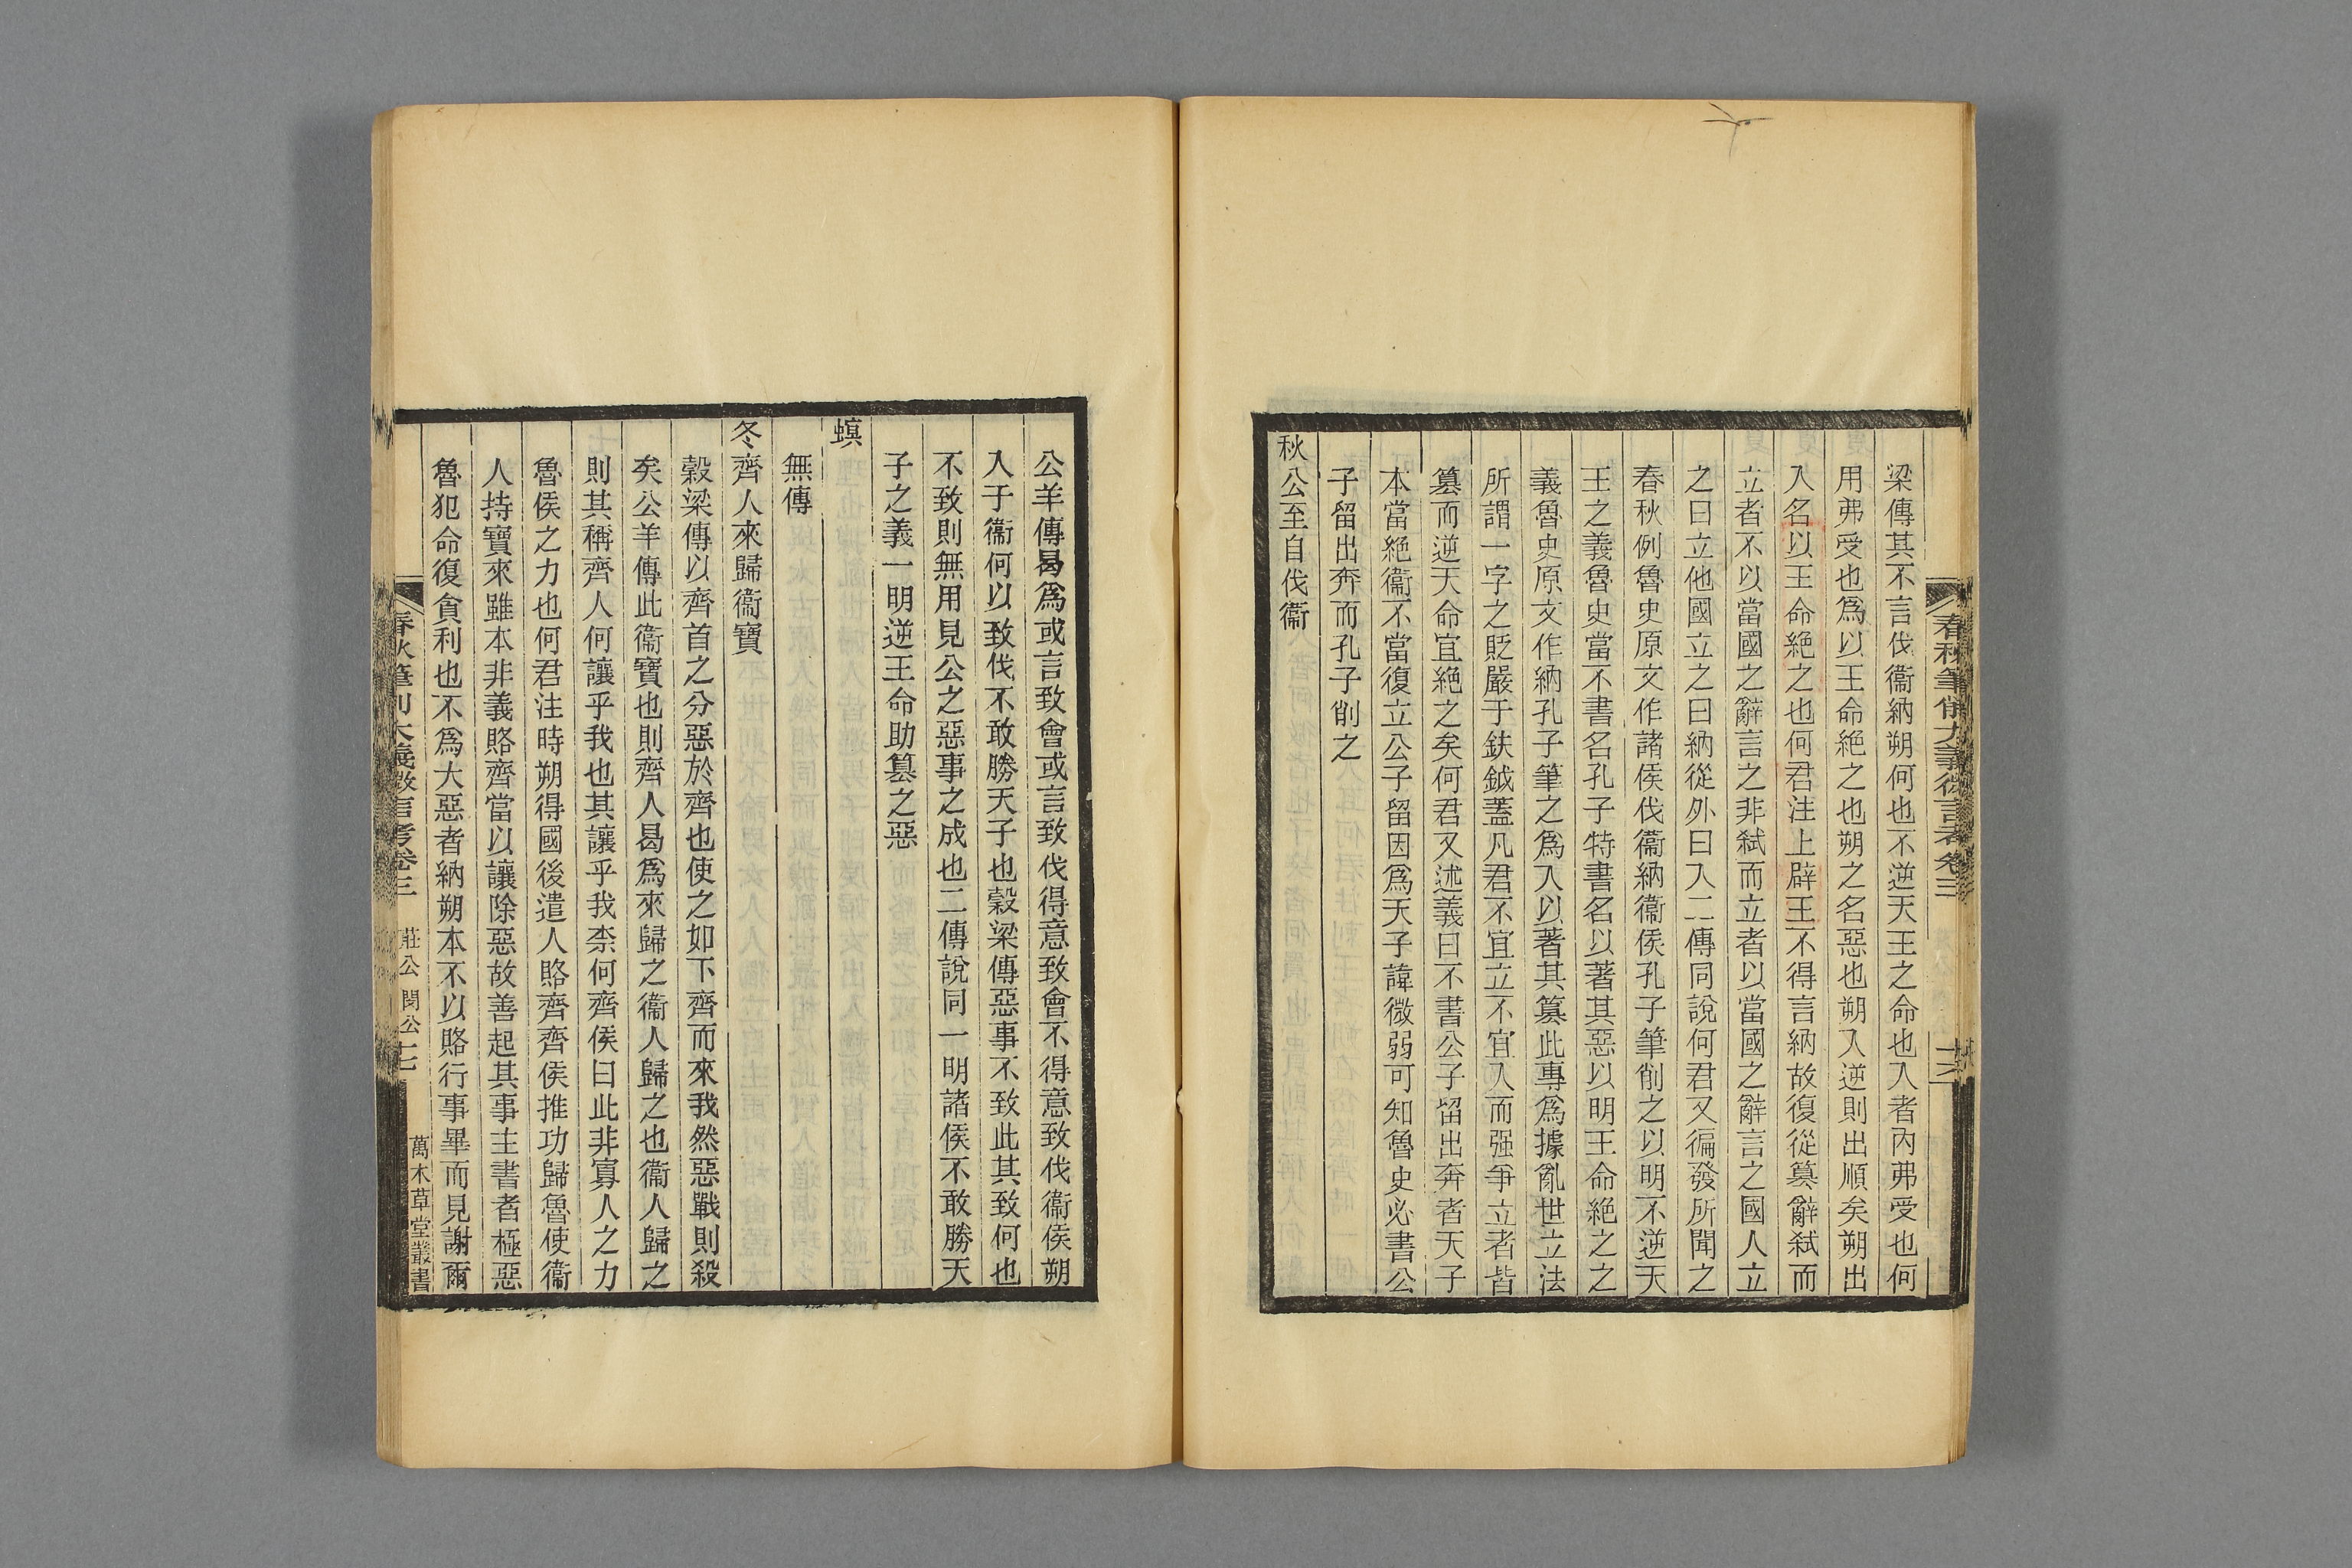 春秋筆削大義微言考卷三
梁傳其不言伐衞納朔何也不逆天王之命也入者內弗受也何
用弗受也爲以王命絶之也朔之名惡也朔入逆則出順矣朔出
入名以王命絶之也何君注上辟王不得言納故復從篡辭弑而
立者不以當國之辭言之非弑而立者以當國之辭言之國人立
之曰立他國立之曰納從外曰入二傳同說何君又徧發所聞之
春秋例魯史原文作諸侯伐衞納衞侯孔子筆削之以明不逆天
王之義魯史當不書名孔子特書名以著其惡以明王命絶之之
義魯史原文作納孔子筆之爲入以著其篡此專爲據亂世立法
所謂一字之貶嚴于鈇鉞蓋凡君不宜立不宜入而强爭立者皆
篡而逆天命宜絶之矣何君又述義曰不書公子留出奔者天子
本當絶衞不當復立公子留因爲天子諱微弱可知魯史必書公
子留出奔而孔子削之
秋公至自伐衞
公羊傳曷爲或言致會或言致伐得意致會不得意致伐衞侯朔
入于衞何以致伐不敢勝天子也穀梁傳惡事不致此其致何也
不致則無用見公之惡事之成也二傳說同一明諸侯不敢勝天
子之義一明逆王命助篡之惡
螟
無傳
冬齊人來歸衞寶
穀梁傳以齊首之分惡於齊也使之如下齊而來我然惡戰則殺
矣公羊傳此衞寶也則齊人曷爲來歸之衞人歸之也衞人歸之
則其稱齊人何讓乎我也其讓乎我柰何齊侯曰此非寡人之力
魯侯之力也何君注時朔得國後遣人賂齊齊侯推功歸魯使衞
人持寶來雖本非義賂齊當以讓除惡故善起其事主書者極惡
魯犯命復貪利也不爲大惡者納朔本不以賂行事畢而見謝爾
春秋筆削大義微言考卷三
莊公 閔公
萬木草堂叢書